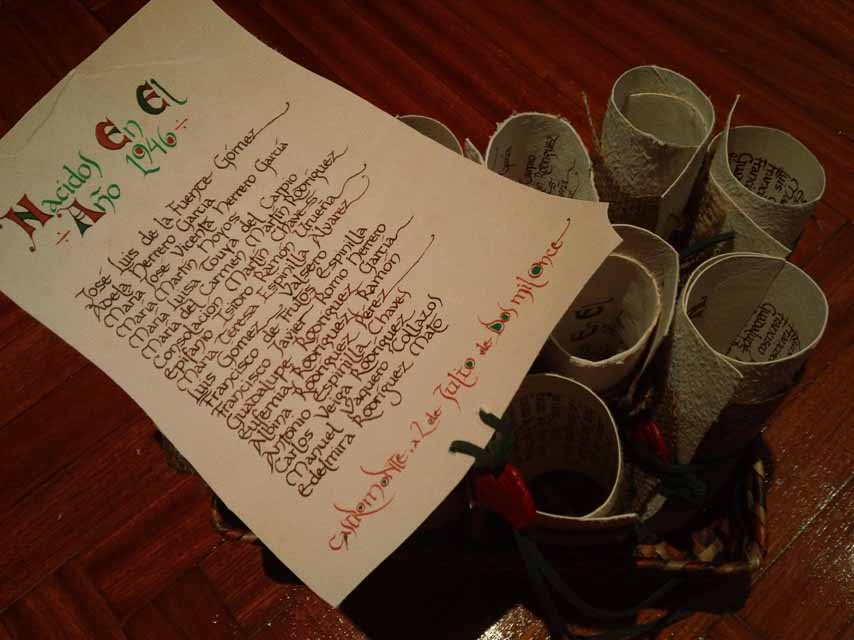 Nacidos En El
Año 1946
José Luis de la Fuente Gómez
Adela Herrero García
María José Vicenta Herrero García
María Martín Hoyos
María Luisa Touya del Carpio
María del Carmen Martín Rodríguez
Consolación Martín Chaves
Epifanio Isidro Ramón Urueña
María Teresa Espinilla Álvarez
Luis Gómez Valsero
Francisco de Frutos Espinilla
Francisco Javier Romo Herrero
Guadalupe Rodríguez García
Eufemia Rodríguez Ramón
Albina Rodríguez Pérez
Antonio Espinilla Chaves
Carlos Veiga Rodríguez
Manuel Vaquero Collazos
Edelmira Rodríguez Mate
Castromonte, a 2 de Julio de Dos mil once